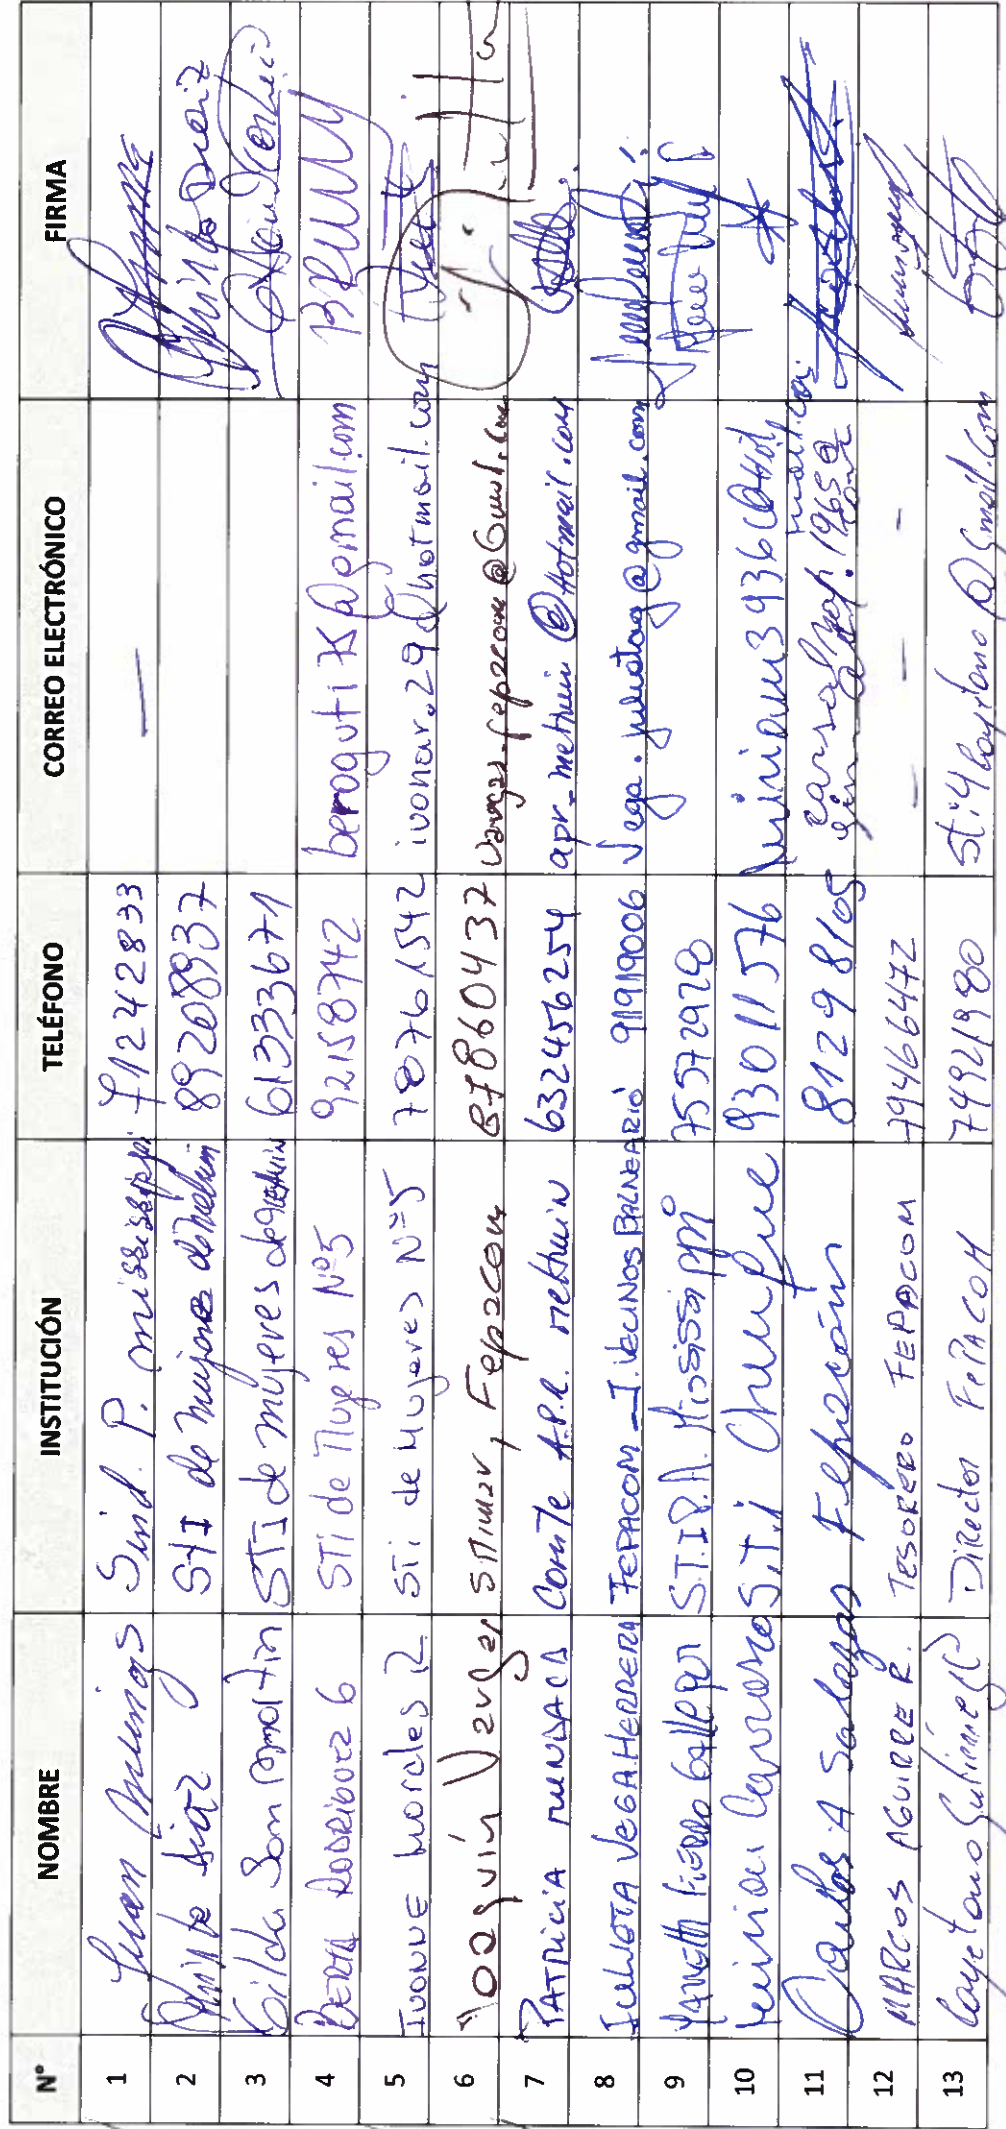 N° NOMBRE INSTITUCIÓN TELÉFONO CORREO ELECTRÓNICO FIRMA
1 Juan Muñoz Sind. P. mississippi 71242833 —
2 Díaz STI de mujeres de mehuin 89208937
3 Gilda San Martin STI de mujeres de mehuin 61333671
4 BERTA RODRIGUEZ G STi de Mujeres Nº5 92158742 berroguti75@gmail.com BRUNY
5 IVONNE MORALES R. STi de Mujeres Nº5 78761542 ivonar.29@hotmail.com
6 Joaquín Vargas STIMAR, Fepacom 87860437 vargas-fepacom@Gmail.com
7 PATRICIA MUNDACA Comite A.P.R. mehuin 632456254 apr_mehuin@Hotmail.com
8 JULIETA VEGA HERRERA FEPACOM - J. VECINOS BALNEARIO 91919006 Vega.julietag@gmail.com
9 YANNETH FIERRO GALLEGOS S.T.I.P.A. Mississippi 75572920
10 Miriam Carrasco S.T.i Chungue 93011576 Miriam3936@Hotmail.com
11 Carlos A Salazar Fepacom 81298105
12 MARCOS AGUIRRE R. TESORERO FEPACOM 79466472 — — -
13 Cayetano Gutiérrez Director FEPACOM 74921980 Sti.4Cayetano@Gmail.com